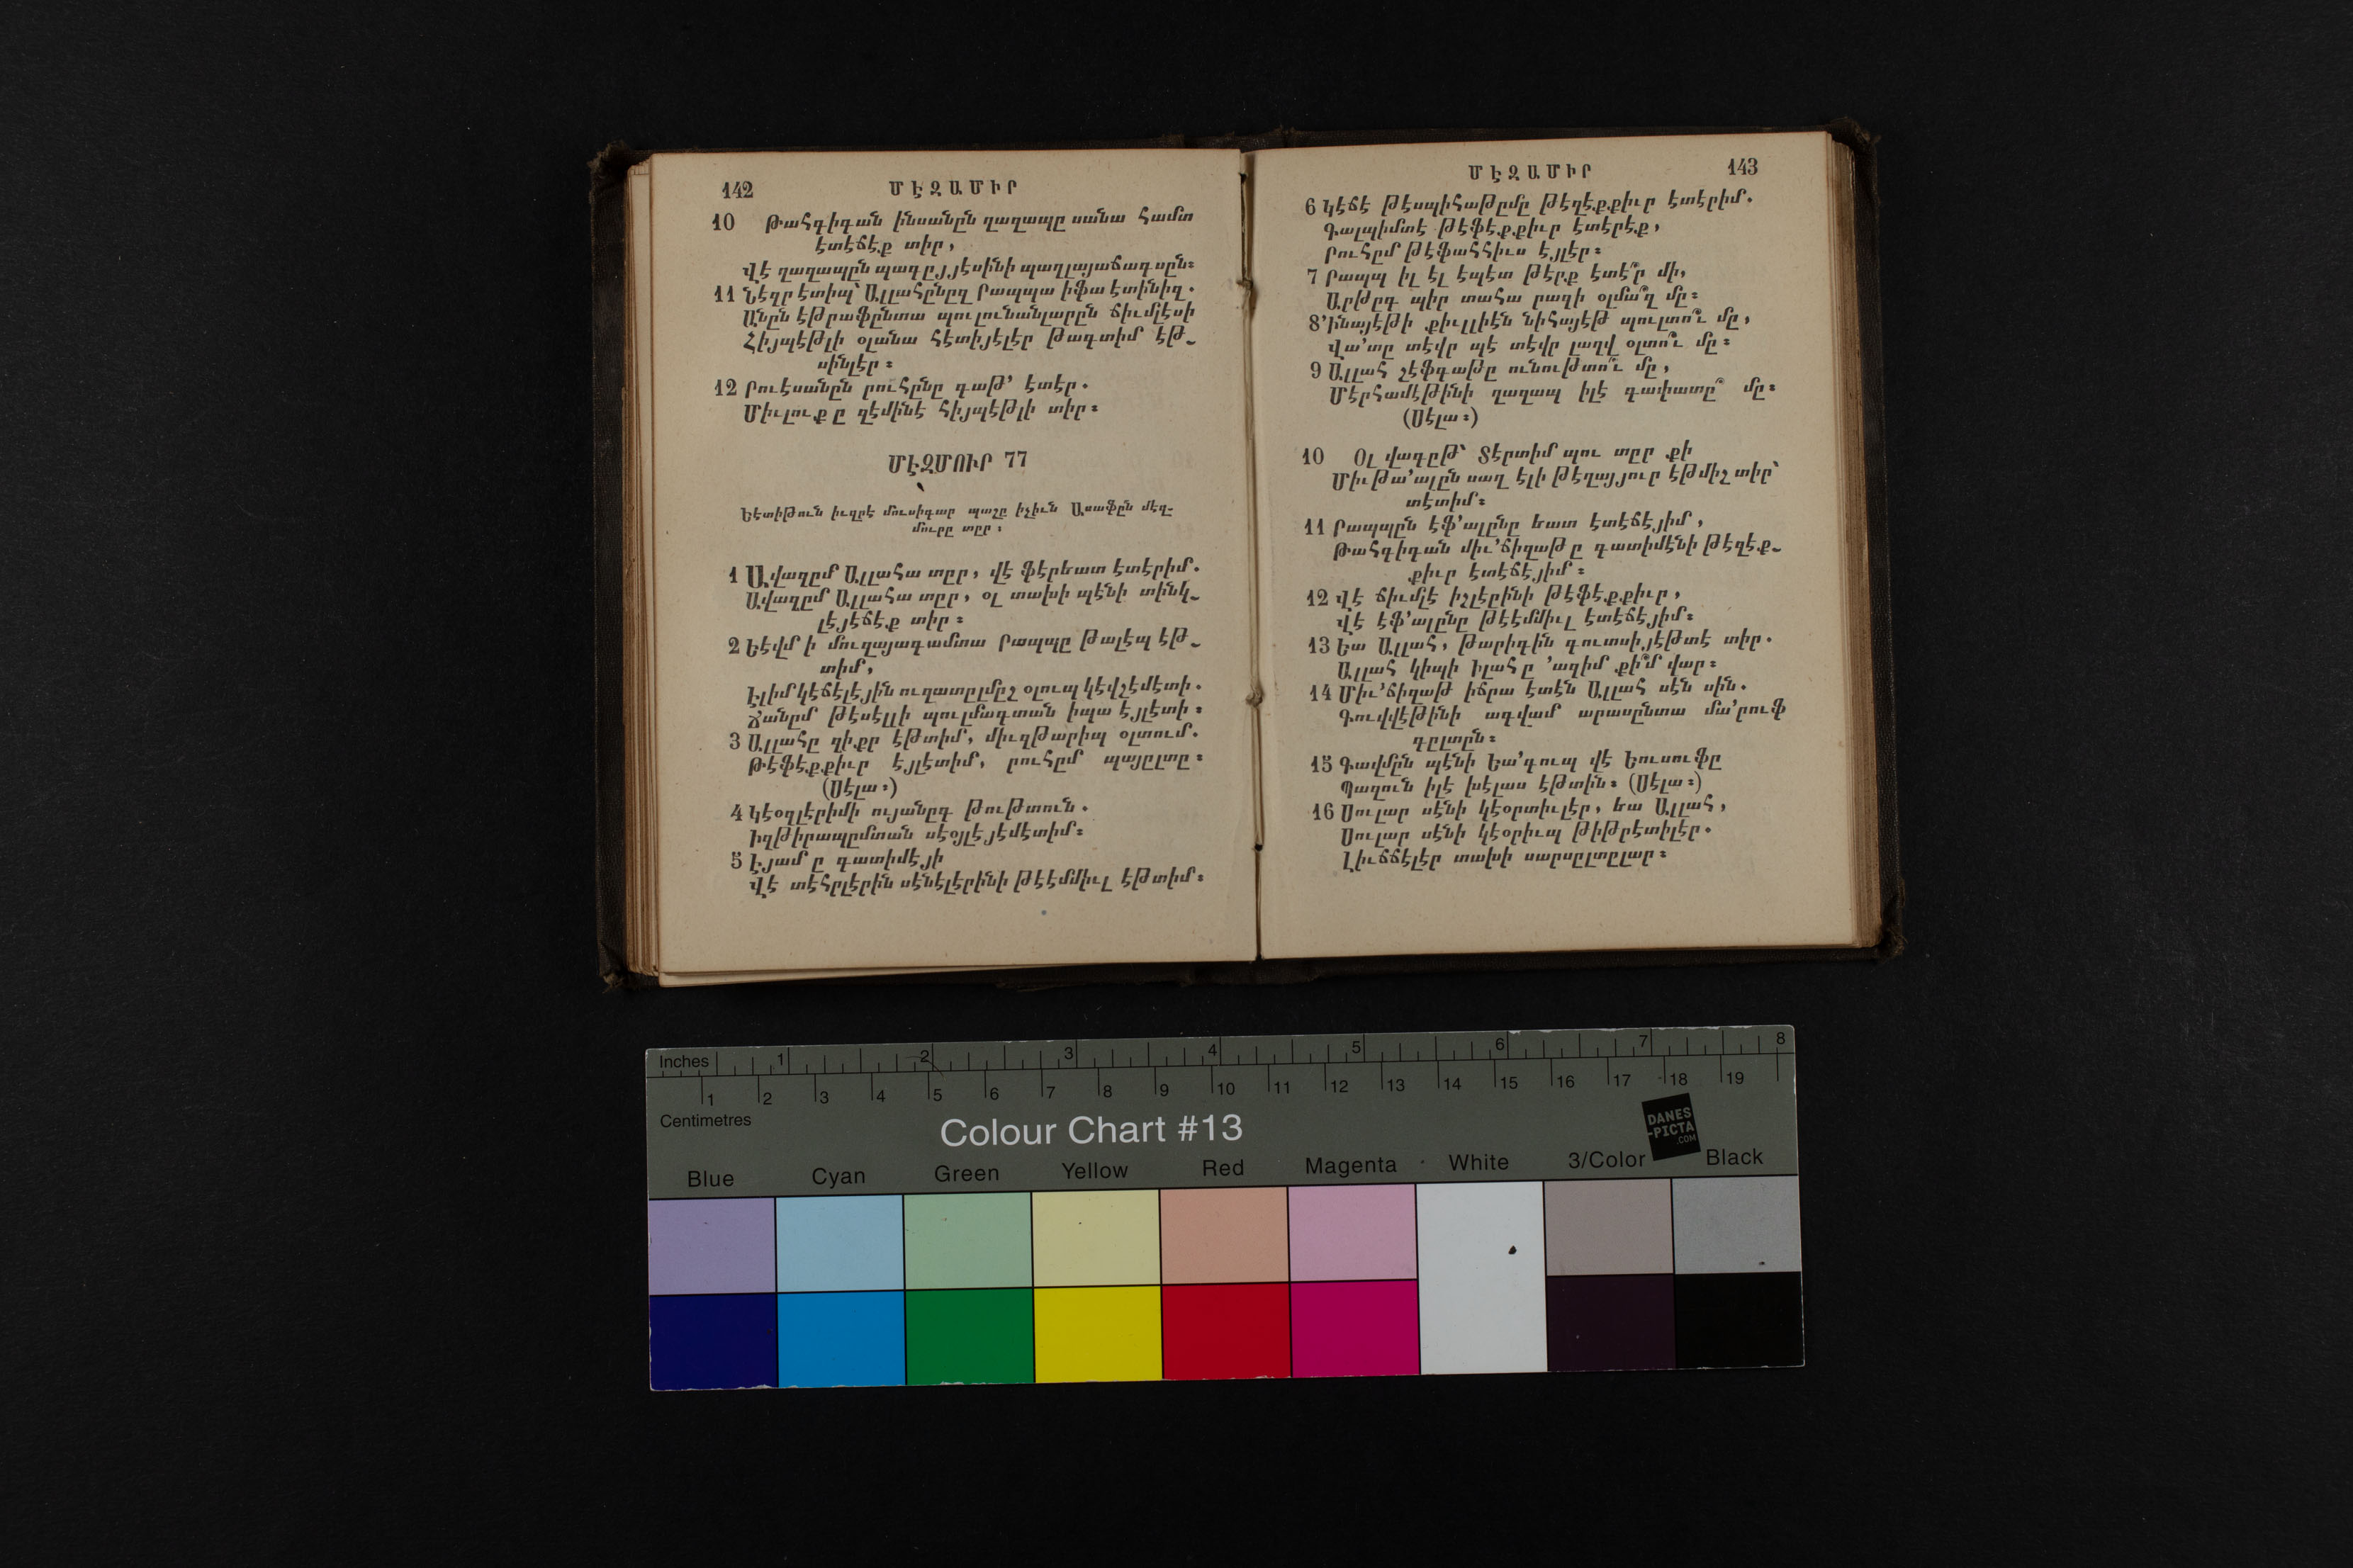 142
ՄԷԶԱՄԻՐ
10 Թահգիգան ինսանըն ղազապը սանա համտ
էտէճէք տիր,
Վէ ղազապըն պագըյյէսինի պաղլայաճագսըն։
11 Նէզր էտիպ՝ Ալլահընըզ Րապպա իֆա էտինիզ.
Անըն էթրաֆընտա պուլունանլարըն ճիւմլէսի
Հիյպէթլի օլանա հէտիյէլէր թագտիմ էթ֊
սինլէր։
12 Րուէսանըն րուհընը գաթ’ էտէր.
Միւլուք ը զէմինէ հիյպէթլի տիր։
ՄԷԶՄՈՒՐ 77
Եէտիթուն իւզրէ մուսիգար պաշը իչիւն Ասաֆըն մէզ֊
մուրը տըր։
1 Ավազըմ Ալլահա տըր, վէ ֆէրեատ էտէրիմ.
Ավազըմ Ալլահա տըր, օլ տախի պէնի տինկ֊
լէյէճէք տիր։
2 Եէվմ ի մուզայագամտա Րապպը թալէպ էթ֊
տիմ,
Էլիմ կէճէլէյին ուզատըլմըշ օլուպ կէվշէմէտի.
Ճանըմ թէսէլլի պուլմագտան իպա էյլէտի։
3 Ալլահը զիքր էթտիմ, միւզթարիպ օլտում.
Թէֆէքքիւր էյլէտիմ, րուհըմ պայըլտը։
(Սէլա։)
4 Կէօզլէրիմի ույանըգ թութտուն.
Իզթիրապըմտան սէօյլէյէմէտիմ։
5 Էյամ ը գատիմէյի
Վէ տէհրլէրին սէնէլէրինի թէէմմիւլ էթտիմ։
ՄԷԶԱՄԻՐ
143
6 Կէճէ թէսպիհաթըմը թէզէքքիւր էտէրիմ.
Գալպիմտէ թէֆէքքիւր էտէրէք,
Րուհըմ թէֆահհիւս էյլէր։
7 Րապպ իլ էլ էպէտ թէրք էտէ՞ր մի,
Արթըգ պիր տահա րազի օլմա՞զ մը։
8 ’Ինայէթի քիւլլիէն նիհայէթ պուլտո՞ւ մը,
Վա’տը տէվր պէ տէվր լաղվ օլտո՞ւ մը։
9 Ալլահ շէֆգաթը ունութտո՞ւ մը,
Մէրհամէթինի ղազապ իլէ գափատը՞ մը։
(Սէլա։)
10 Օլ վագըթ՝ Տէրտիմ պու տըր քի
Միւթա’ալըն սաղ էլի թէղայյուր էթմիշ տիր՝
տէտիմ։
11 Րապպըն էֆ’ալընը եատ էտէճէյիմ,
Թահգիգան միւ’ճիզաթ ը գատիմէնի թէզէք֊
քիւր էտէճէյիմ։
12 Վէ ճիւմլէ իշլէրինի թէֆէքքիւր,
Վէ էֆ’ալընը թէէմմիւլ էտէճէյիմ։
13 Եա Ալլահ, թարիգին գուտսիյէթտէ տիր.
Ալլահ կիպի իլահ ը ’ազիմ քի՞մ վար։
14 Միւ’ճիզաթ իճրա էտէն Ալլահ սէն սին.
Գուվվէթինի ագվամ արասընտա մա’րուֆ
գըլտըն։
15 Գավմըն պէնի Եա’գուպ վէ Եուսուֆը
Պազուն իլէ խէլաս էթտին։ (Սէլա։)
16 Սուլար սէնի կէօրտիւլէր, եա Ալլահ,
Սուլար սէնի կէօրիւպ թիթրէտիլէր.
Լիւճճէլէր տախի սարսըլտըլար։
Inches 1 2 3 4 5 6 7 8
1 2 3 4 5 6 7 8 9 10 11 12 13 14 15 16 17 18 19
Centimetres
Colour Chart #13
DANES
-PICTA
.COM
Blue Cyan Green Yellow Red Magenta White 3/Color Black